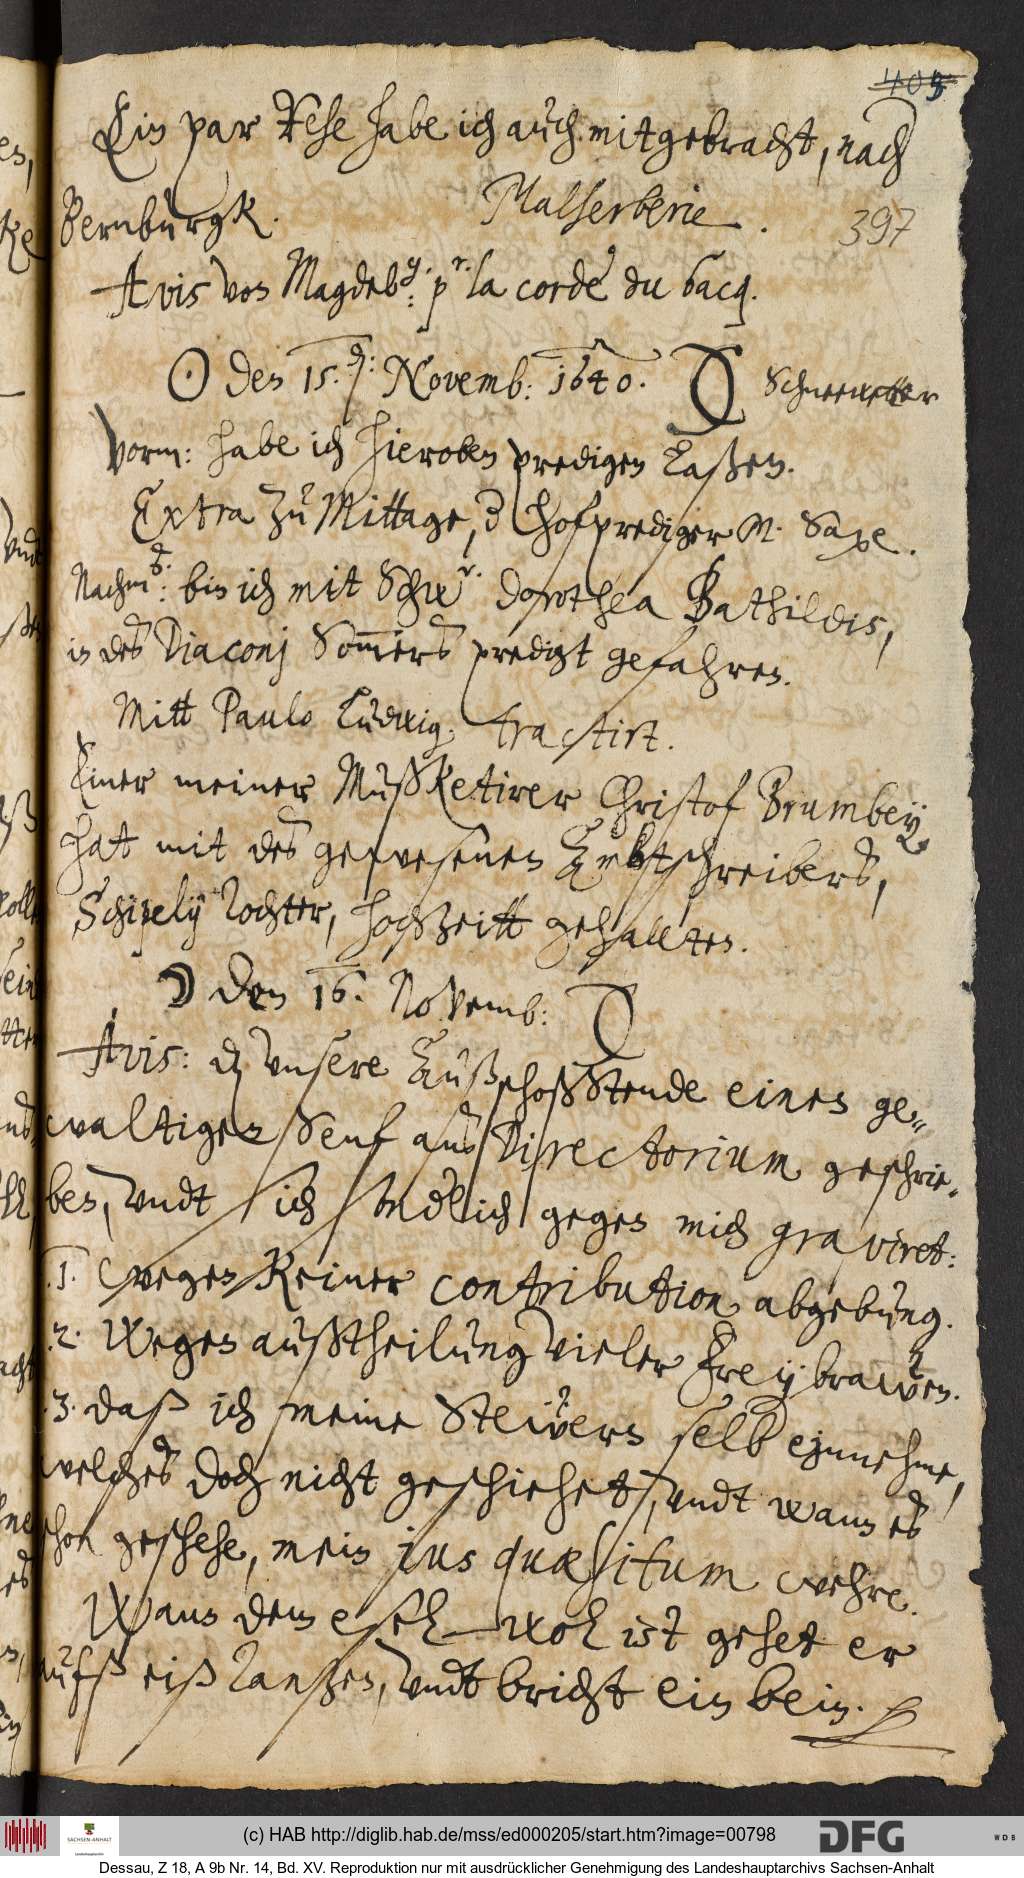 405
Ein par Rehe habe ich auch mitgebracht, nach
Bernburgk. Malserberie.
397
Avis von Magdeb: pr. la corde du bacq.
☉ den 15. Novemb: 1640. Schneewetter
Vorm: habe ich hieroben predigen laßen.
Extra zu Mittage, d hofprediger M. Saxe.
Nachm: bin ich mit Schwr. Dorothea Bathildis,
in des Diaconj Som̄ers predigt gefahren.
Mitt Paulo Ludwig. tractirt.
Einer meiner Mußketirer Christof Brumbey,
hat mit des gewesenen Ambtschreibers,
Schipely Tochter, hochzeitt gehalten.
☽ den 16. Novemb:
Avis: dz unsere Außschoß Stende einen ge-
waltigen Senf ans Directorium geschrie-
ben, undt sich endlich gegen mich graviret:
.1. wegen keiner contribution abgebung.
.2. Wegen außtheilung vieler Freybrawen.
.3. daß ich meine Stewern selb eynnehme,
welches doch nicht geschiehet, undt wann es
schon geschehe, mein jus quæsitum wehre.
Wann dem esell wol ist gehet er
aufß eiß tantzen, undt bricht ein bein.
(c) HAB http://diglib.hab.de/mss/ed000205/start.htm?image=00798
SACHSEN-ANHALT
DFG
WDB
Dessau, Z 18, A 9b Nr. 14, Bd. XV. Reproduktion nur mit ausdrücklicher Genehmigung des Landeshauptarchivs Sachsen-Anhalt